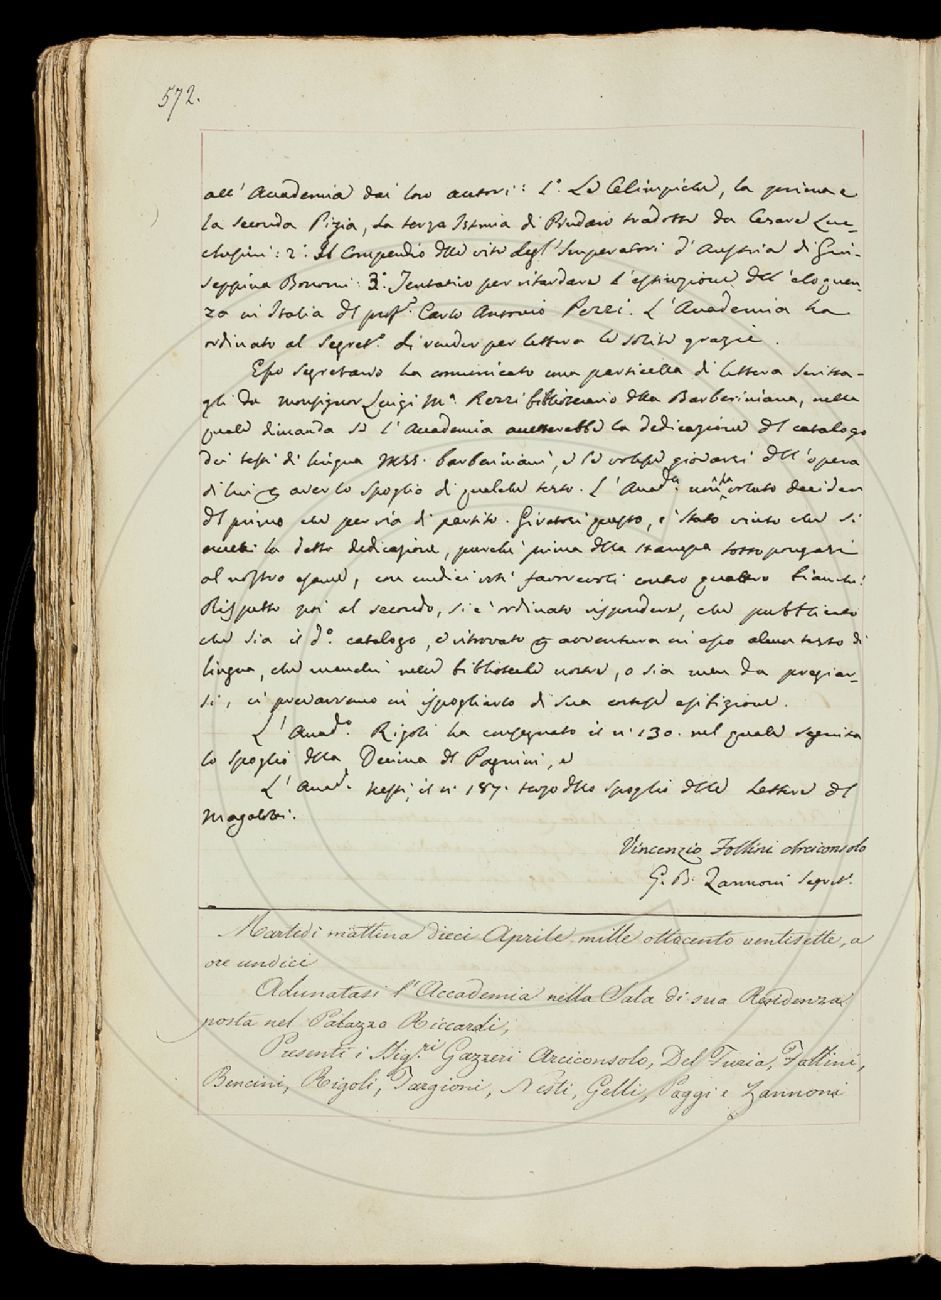 572.
all' Accademia dai loro autori: 1.° Le Olimpiche, la prima e
la seconda Pizia, la terza Istmia di Pindaro tradotte da Cesare Luc-
chesini: 2.° Il Compendio delle vite degl' Imperatori d'Austria di Giu-
seppina Bononi: 3.° Tentativo per ritardare l'estinzione dell' eloquen-
za in Italia del prof.r Carlo Antonio Pezzi. L'Accademia ha
ordinato al Segret.o di render per lettera le solite grazie.
Esso Segretario ha comunicato una particella di lettera scritta-
gli da monsignor Luigi M.a Rezzi bibliotecario della Barberiniana, nella
quale dimanda se l'Accademia accetterebbe la dedicazione del catalogo
dei testi di lingua MSS. barberiniani, e se volesse giovarsi dell' opera
di lui aver lo spoglio di qualche testo. L'Accad.a non ha voluto decider
del primo che per via di partito. Giratosi questo, è stato vinto che si
accetti la detta dedicazione, purchè prima della stampa sottopongasi
al nostro esame, con undici voti favorevoli contro quattro bianchi.
Rispetto poi al secondo, si è ordinato rispondere, che pubblicato
che sia il d.o catalogo, e ritrovato avventura in esso alcun testo di
lingua, che manchi nelle biblioteche nostre, o sia men da pregiar-
si, ci prevarremo in ispogliarlo di sua cortese esibizione.
L'Accad.o Rigoli ha consegnato il n.° 130. nel quale seguita
lo spoglio della Decima del Pagnini, e
L'Accad.o Nesti, il n.° 187. terzo dello spoglio delle Lettere del
Magalotti.
Vincenzio Follini Arciconsolo
G. B. Zannoni Segret.o
Martedì mattina dieci Aprile mille ottocento ventisette, a
ore undici
Adunatasi l'Accademia nella Sala di sua Residenza
posta nel Palazzo Riccardi,
Presenti i Sigg.ri Gazzeri Arciconsolo, Del Furia, Follini,
Bencini, Rigoli, Targioni, Nesti, Gelli, Poggi e Zannoni